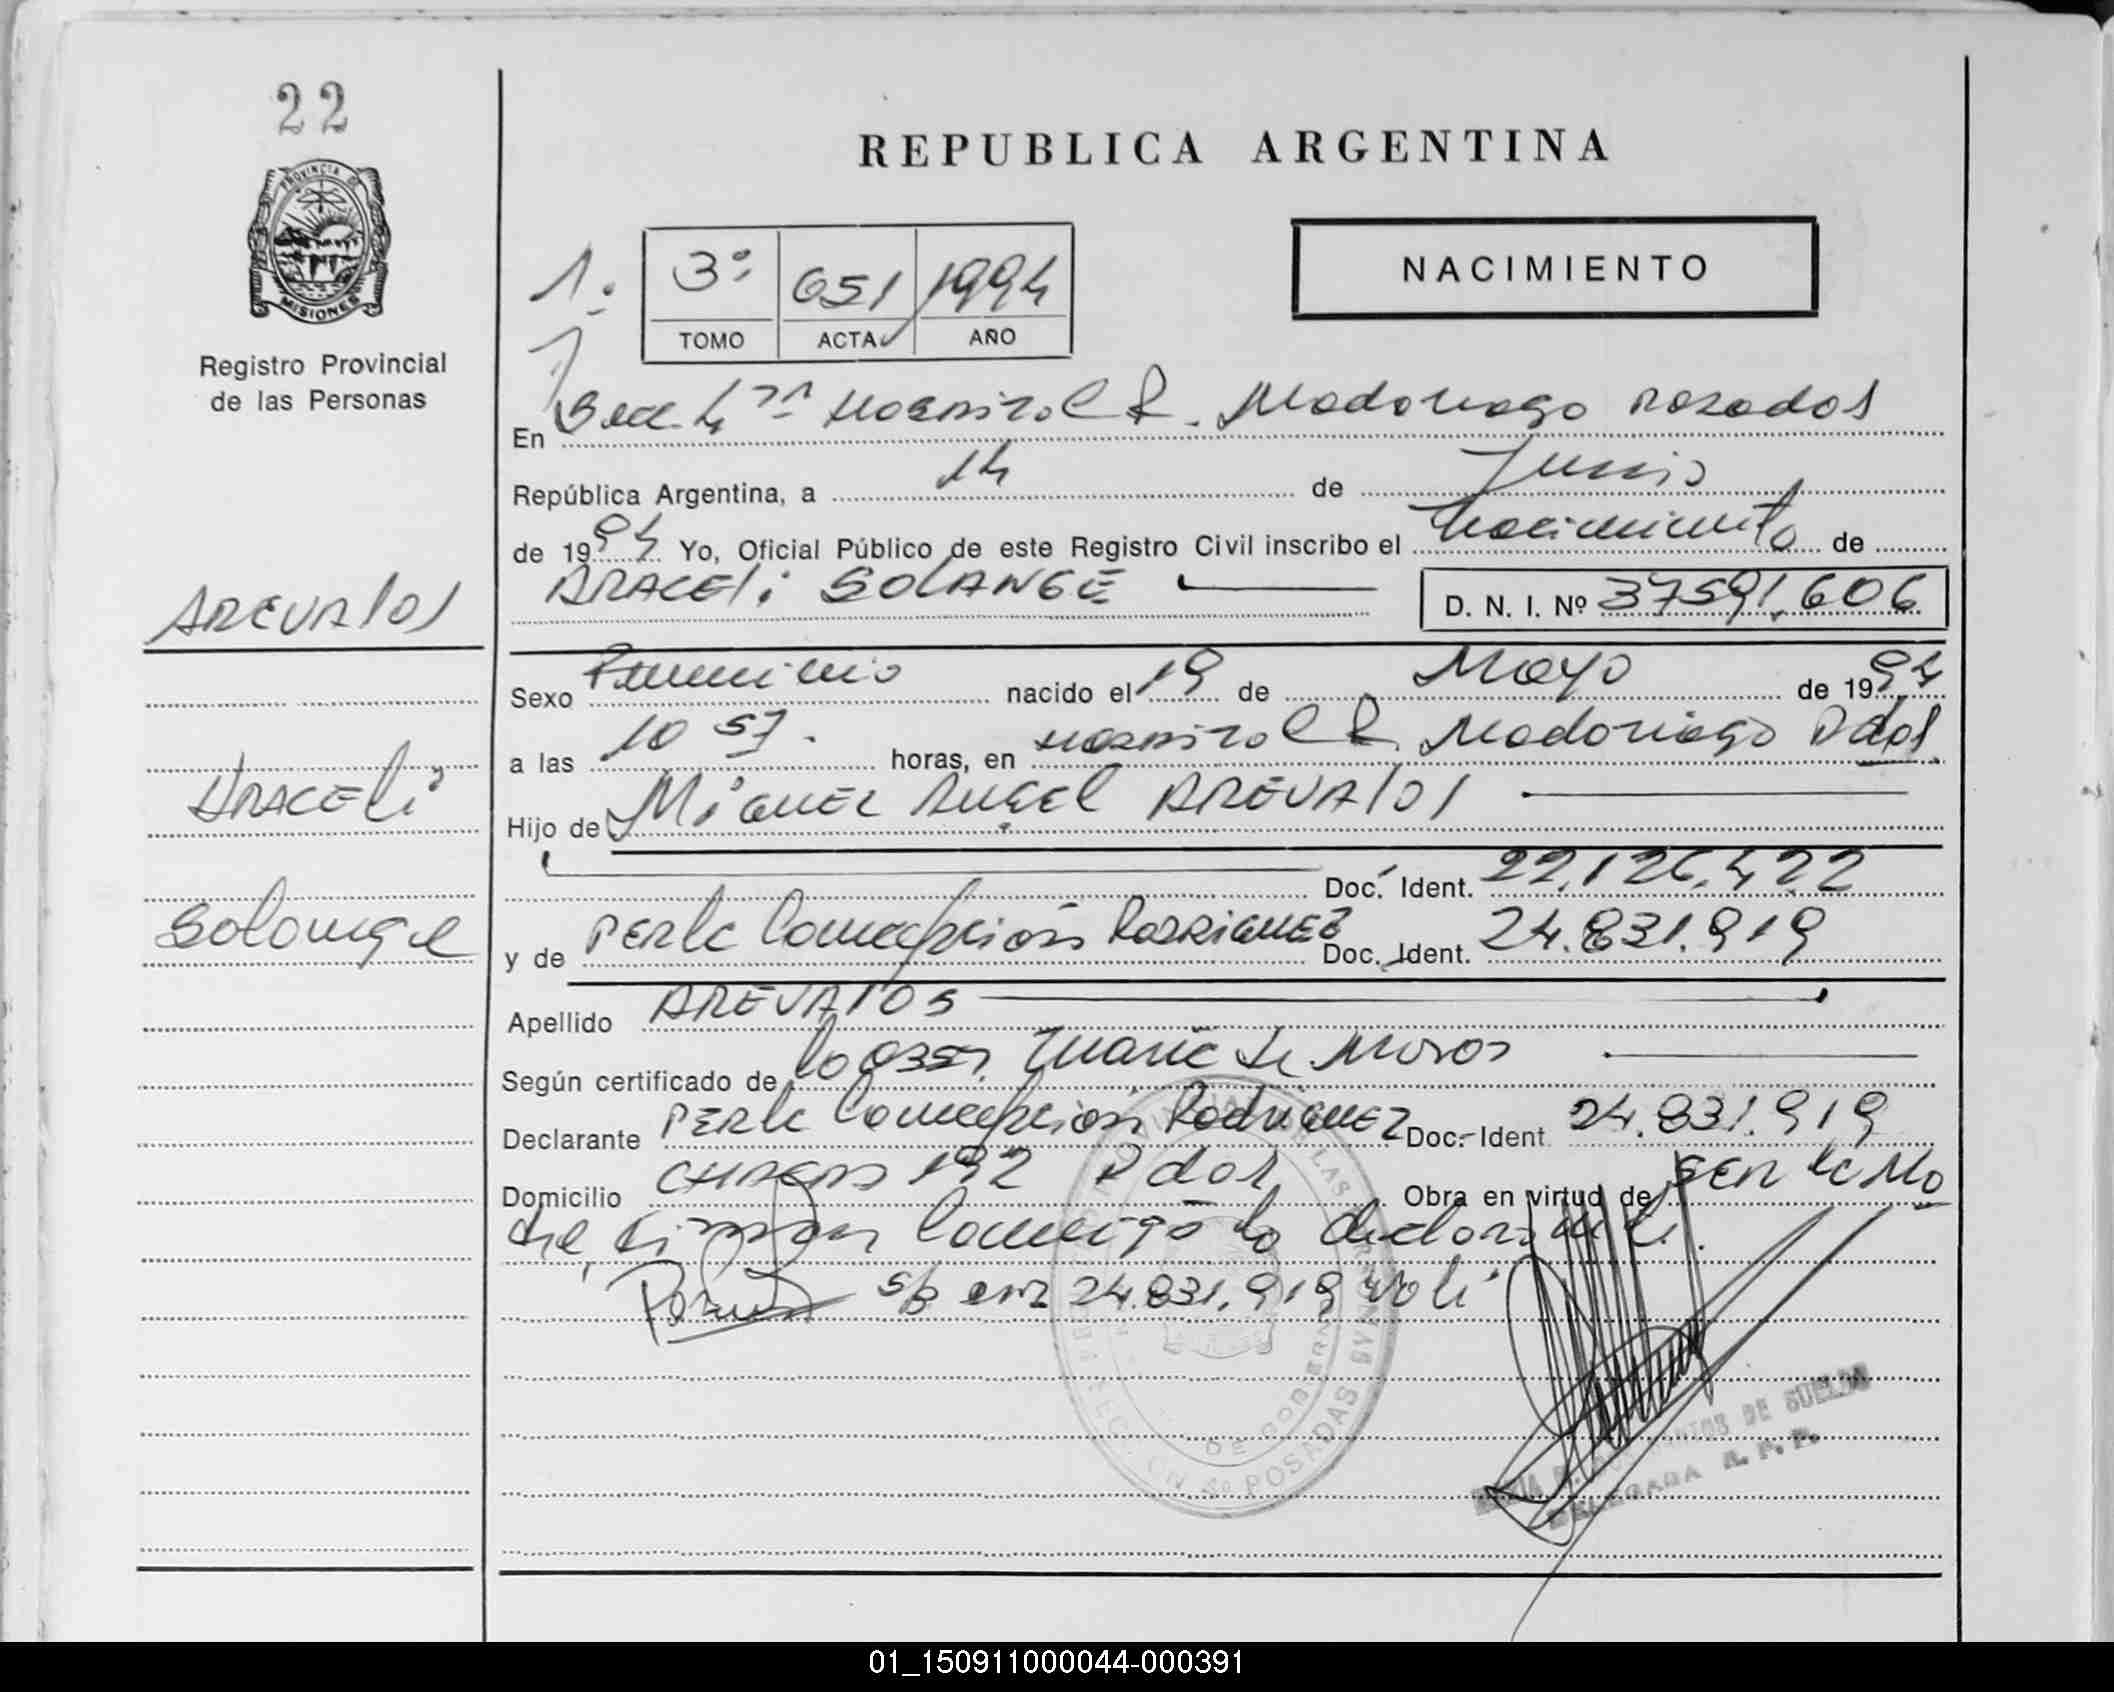 22
PROVINCIA DE
MISIONES
Registro Provincial
de las Personas
REPUBLICA ARGENTINA
NACIMIENTO
1º
3º 051 1994
TOMO ACTA AÑO
En Secc. 4ta Hospital R. Madariaga Posadas
República Argentina, a 14 de Junio
de 1994 Yo, Oficial Público de este Registro Civil inscribo el Nacimiento de
ARACELI SOLANGE D. N. I. Nº 37591.606
AREVALOS
Sexo Femenino nacido el 19 de Mayo de 1994
a las 10 57. horas, en Hospital R. Madariaga Pdas.
Araceli
Hijo de Miguel Angel AREVALOS
Doc. Ident. 22.126.422
Solange
y de Perla Concepción Rodriguez Doc. Ident. 24.831.919
Apellido AREVALOS
Según certificado de la Obst. Maria de
Declarante Perla Concepción Rodriguez Doc. Ident 24.831.919
Domicilio 192 Pdas Obra en virtud de
Conmigo la declarante.
24.831.919
DE GOBIERNO
POSADAS
DE
DELEGADA R. P. P.
01_150911000044-000391